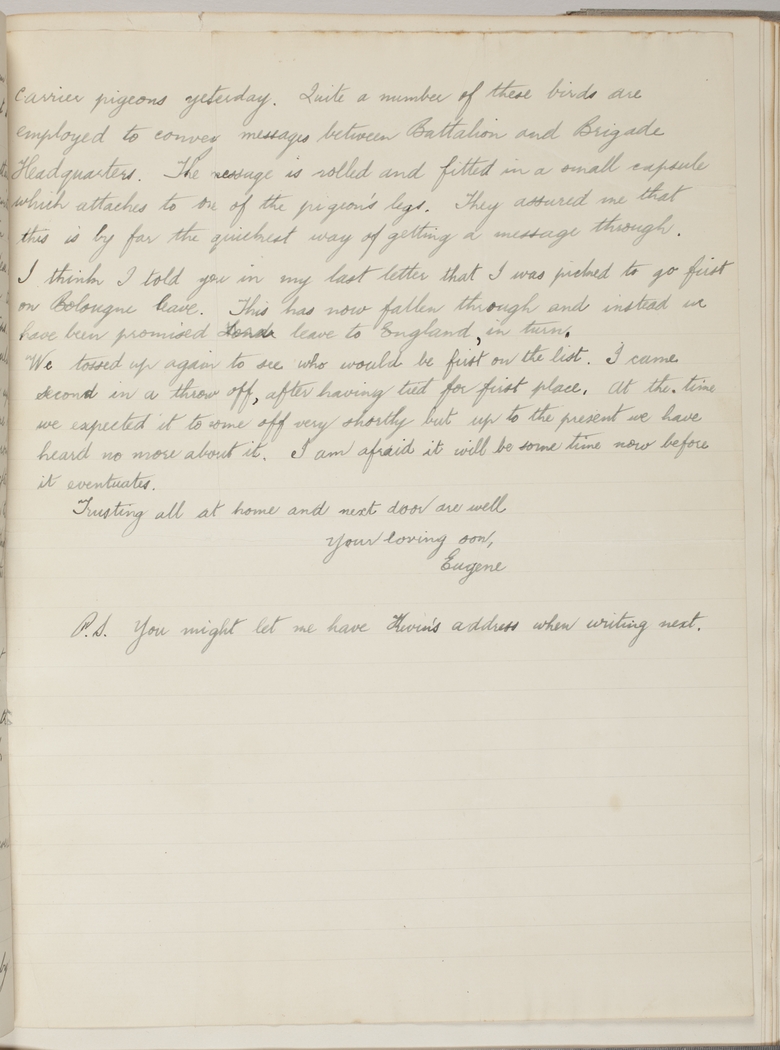 carrier pigeons yesterday. Quite a number of these birds are
employed to convey messages between Battalion and Brigade
Headquarters. The message is rolled and fitted in a small capsule
which attaches to one of the pigeon's legs. They assured me that
this is by far the quickest way of getting a message through.
I think I told you in my last letter that I was picked to go first
on Bolougne leave. This has now fallen through and instead we
have been promised leave to England, in turn.
We tossed up again to see who would be first on the list. I came
second in a throw off, after having tied for first place. At the time
we expected it to come off very shortly but up to the present we have
heard no more about it. I am afraid it will be some time now before
it eventuates.
Trusting all at home and next door are well
Your loving son,
Eugene
P.S. You might let me have Kevin's address when writing next.